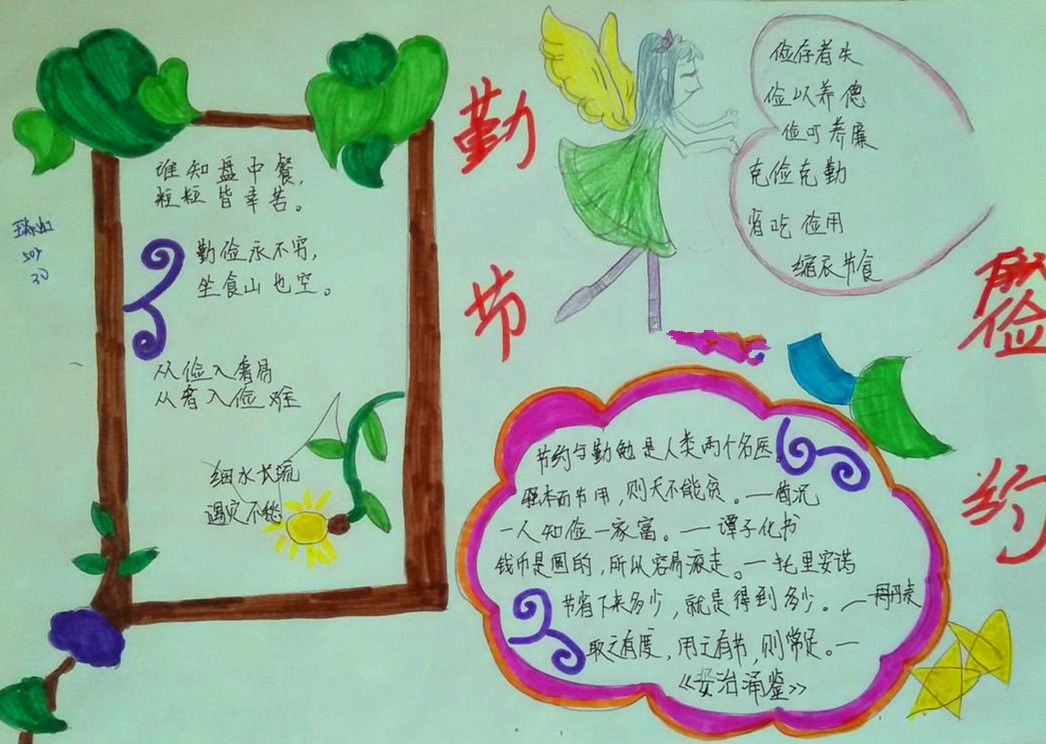 勤
节
俭
约
谁知盘中餐，
粒粒皆幸苦。
勤俭永不穷，
坐食山也空。
从俭入奢易
从奢入俭难
细水长流
遇灾不愁
俭存奢失
俭以养德
俭可养廉
克俭克勤
省吃俭用
缩衣节食
节约与勤勉是人类两个名医。
强本而节用，则天不能贫。—荀况
一人知俭一家富。—谭子化书
钱币是圆的，所以容易滚走。—托里安诺
节省下来多少，就是得到多少。—丹麦
取之有度，用之有节，则常足。—
《资治通鉴》